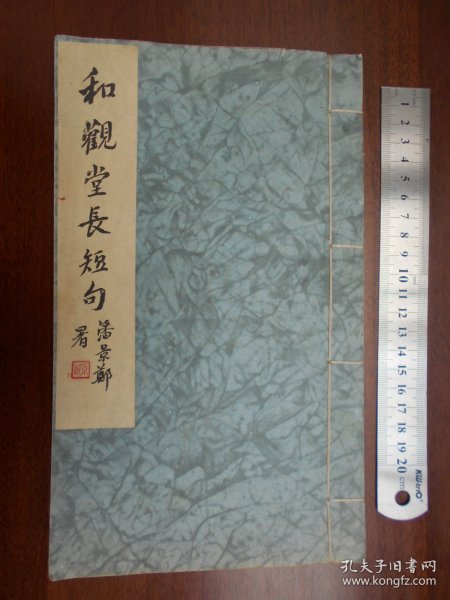 和觀堂長短句
潘景鄭
署
1 2 3 4 5 6 7 8 9 10 11 12 13 14 15 16 17 18 19 20 cm
孔夫子旧书网
www.kongfz.com